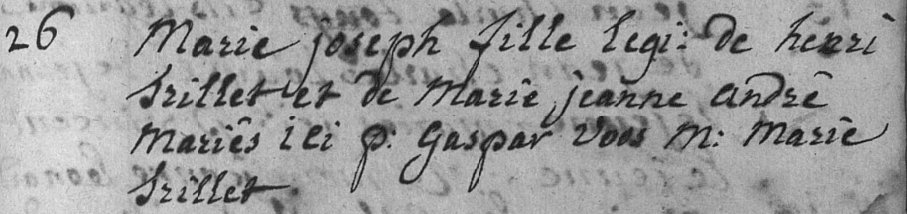 26 Marie joseph fille legi: de henri
Srillet et de Marie jeanne andrê
Mariês ici p: Gaspar Voos M: Marie
Srillet